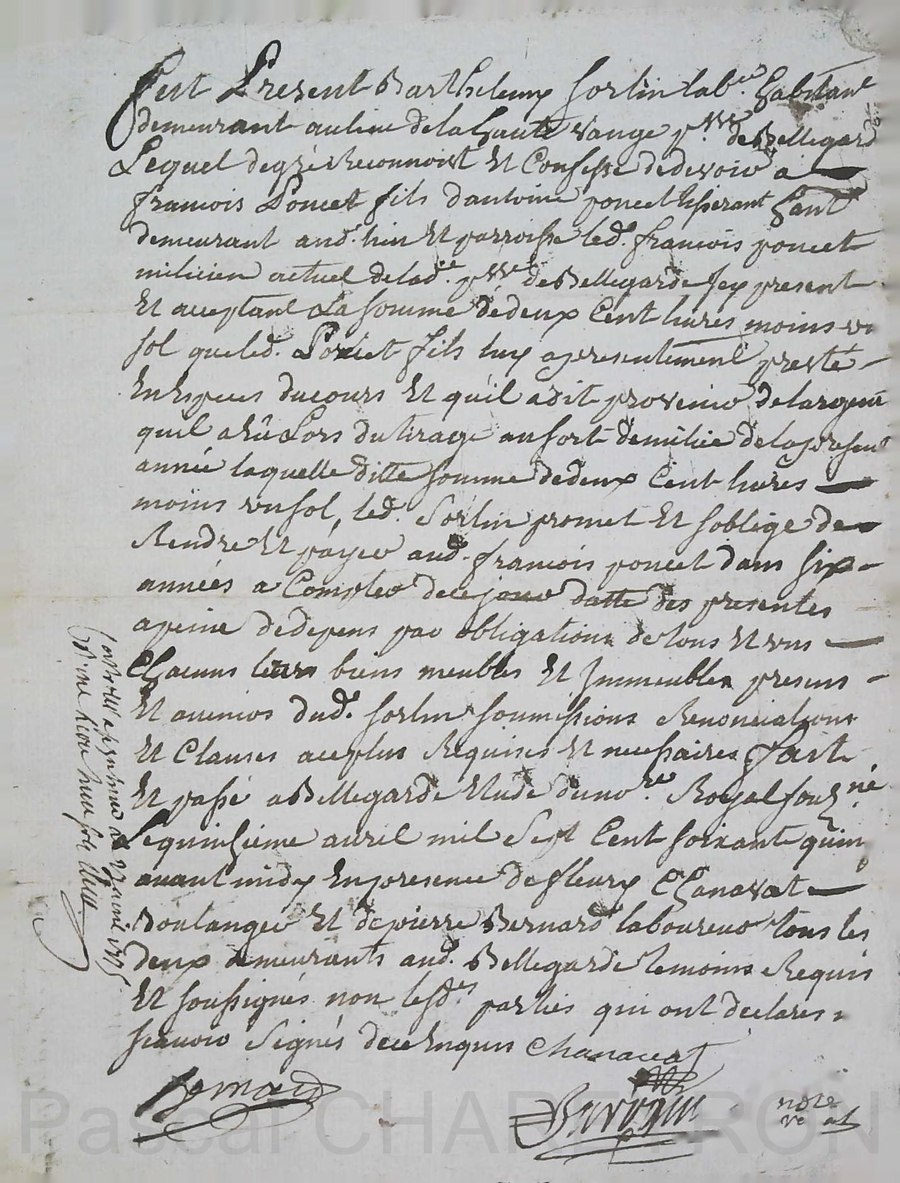 fut Present Barthelemy Sorlin lab.r habitant
demeurant au lieu de la haute vange p.sse de Bellegard
Lequel de gré Reconnoist Et Confesse de devoir a
francois Poncet fils d'antoine poncet
demeurant aud. lieu Et parroisse led. francois poncet
milicien actuel de lad.e p.sse de Bellegarde Icy present
Et aceptant La somme de deux Cent livres moins un
sol que led. Poncet fils luy a presentement presté
En Especes du cours Et qu'il a dit provenir de largent
quil a Eû Lors du tirage au sort de milice de la presente
année laquelle ditte somme de deux Cent livres
moins un sol, led. Sorlin promet Et soblige de
Rendre Et payer aud. francois poncet dans six
années a Compter de ce jour datte des presentes
a peine de depens par obligations de tous Et uns
Chacuns leurs biens meubles Et Immeubles presens
Et avenirs dud. Sorlin soumissions Renonciations
Et Clauses ace plus Requises Et necessaires fait
Et passé a Bellegarde Etude du no.re Royal sous.né
Le quinzieme avril mil Sept Cent soixante quin
avant midy En presence de fleury Chanavat
Boulanger Et de pierre Bernard laboureur tous les
deux demeurants aud. Bellegarde temoins Requis
Et soussignés non lesd.es parties qui ont declarés
scavoir Signés de ce Enquis Chanavat
Bernard
no.re
Pascal CHAMBRON